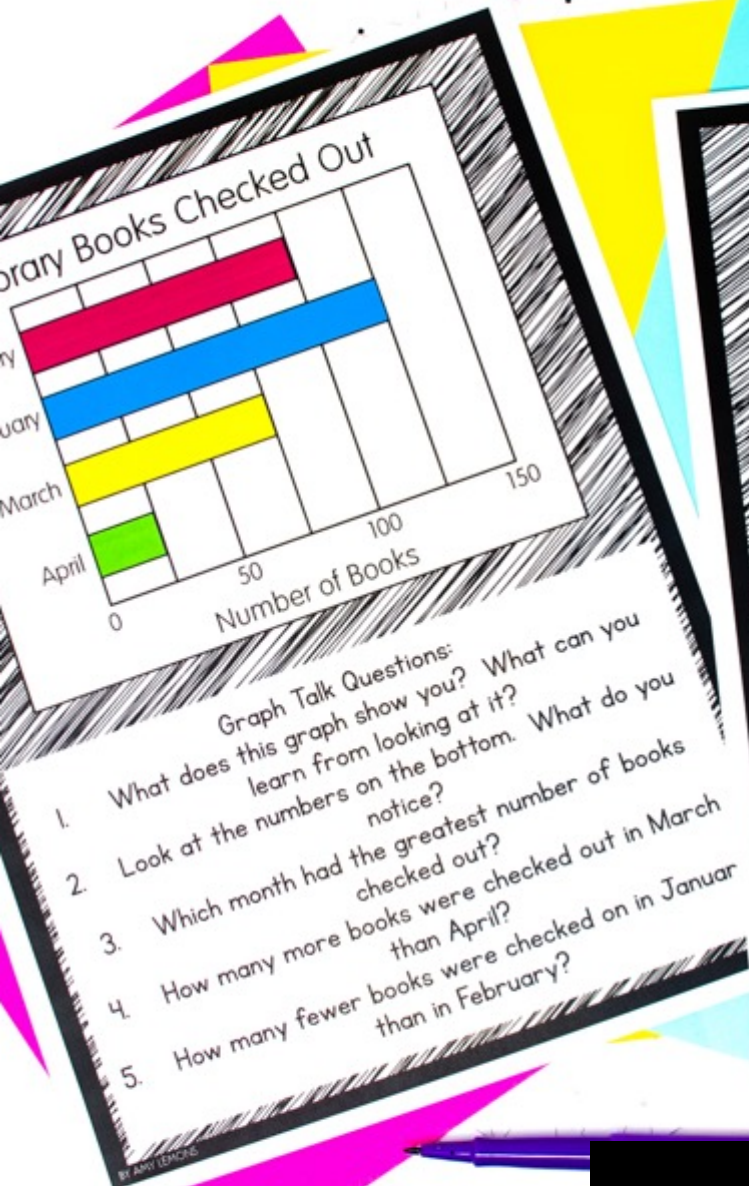 brary Books Checked Out
ry
uary
March
April
0 50 100 150
Number of Books
Graph Talk Questions:
1. What does this graph show you? What can you
learn from looking at it?
2. Look at the numbers on the bottom. What do you
notice?
3. Which month had the greatest number of books
checked out?
4. How many more books were checked out in March
than April?
5. How many fewer books were checked on in Januar
than in February?
BY AMY LEMONS